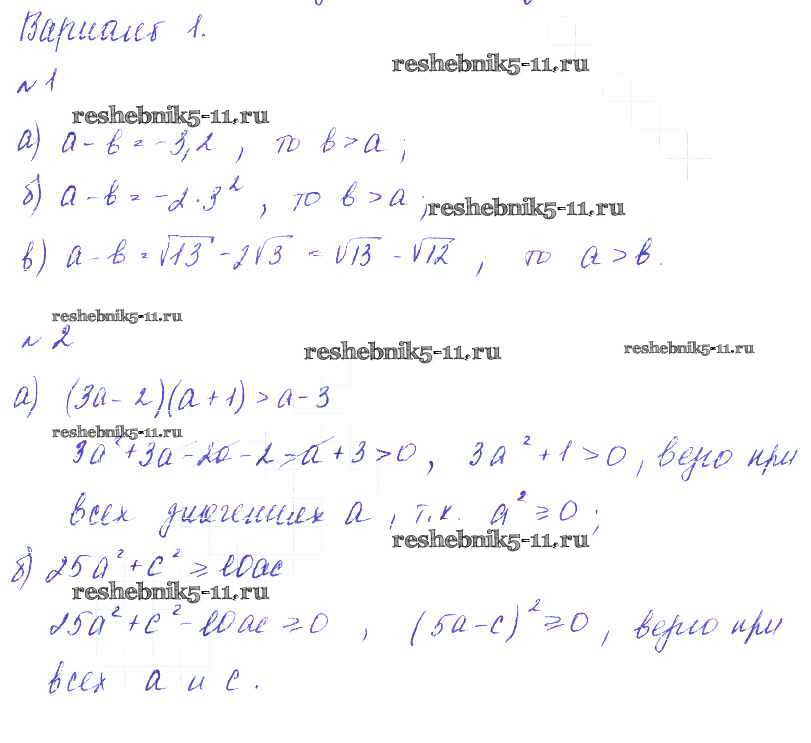 Вариант 1.
reshebnik5-11.ru
№1
reshebnik5-11.ru
а) a - b = -3,2 , то b > a ;
б) a - b = -2·3² , то b > a ;
reshebnik5-11.ru
в) a - b = √13 - 2√3 = √13 - √12 , то a > b .
reshebnik5-11.ru
№2
reshebnik5-11.ru
reshebnik5-11.ru
а) (3a - 2)(a + 1) > a - 3
reshebnik5-11.ru
3a² + 3a - 2a - 2 - a + 3 > 0 , 3a² + 1 > 0 , верно при
всех значениях a , т.к. a² ≥ 0 ;
reshebnik5-11.ru
б) 25a² + c² ≥ 10ac
reshebnik5-11.ru
25a² + c² - 10ac ≥ 0 , (5a - c)² ≥ 0 , верно при
всех a и c .